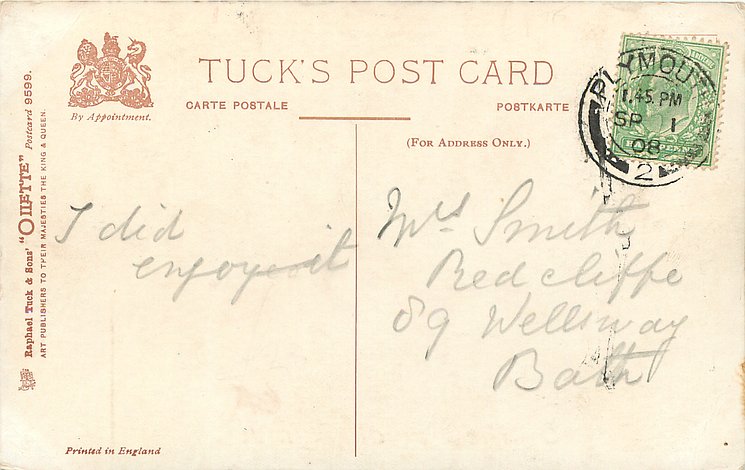 TUCK'S POST CARD
By Appointment.
CARTE POSTALE
POSTKARTE
(FOR ADDRESS ONLY.)
PLYMOUTH
1.45. PM
SP 1
08
2
Raphael Tuck & Sons' "OILETTE" Postcard 9599.
ART PUBLISHERS TO THEIR MAJESTIES THE KING & QUEEN.
I did
enjoy it
Mrs Smith
Redcliffe
89 Wellsway
Bath
Printed in England